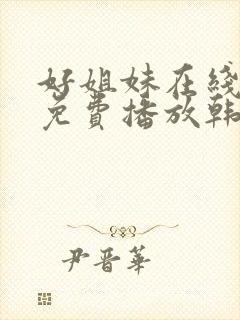 好姐妹在线
免费播放韩
尹晋華